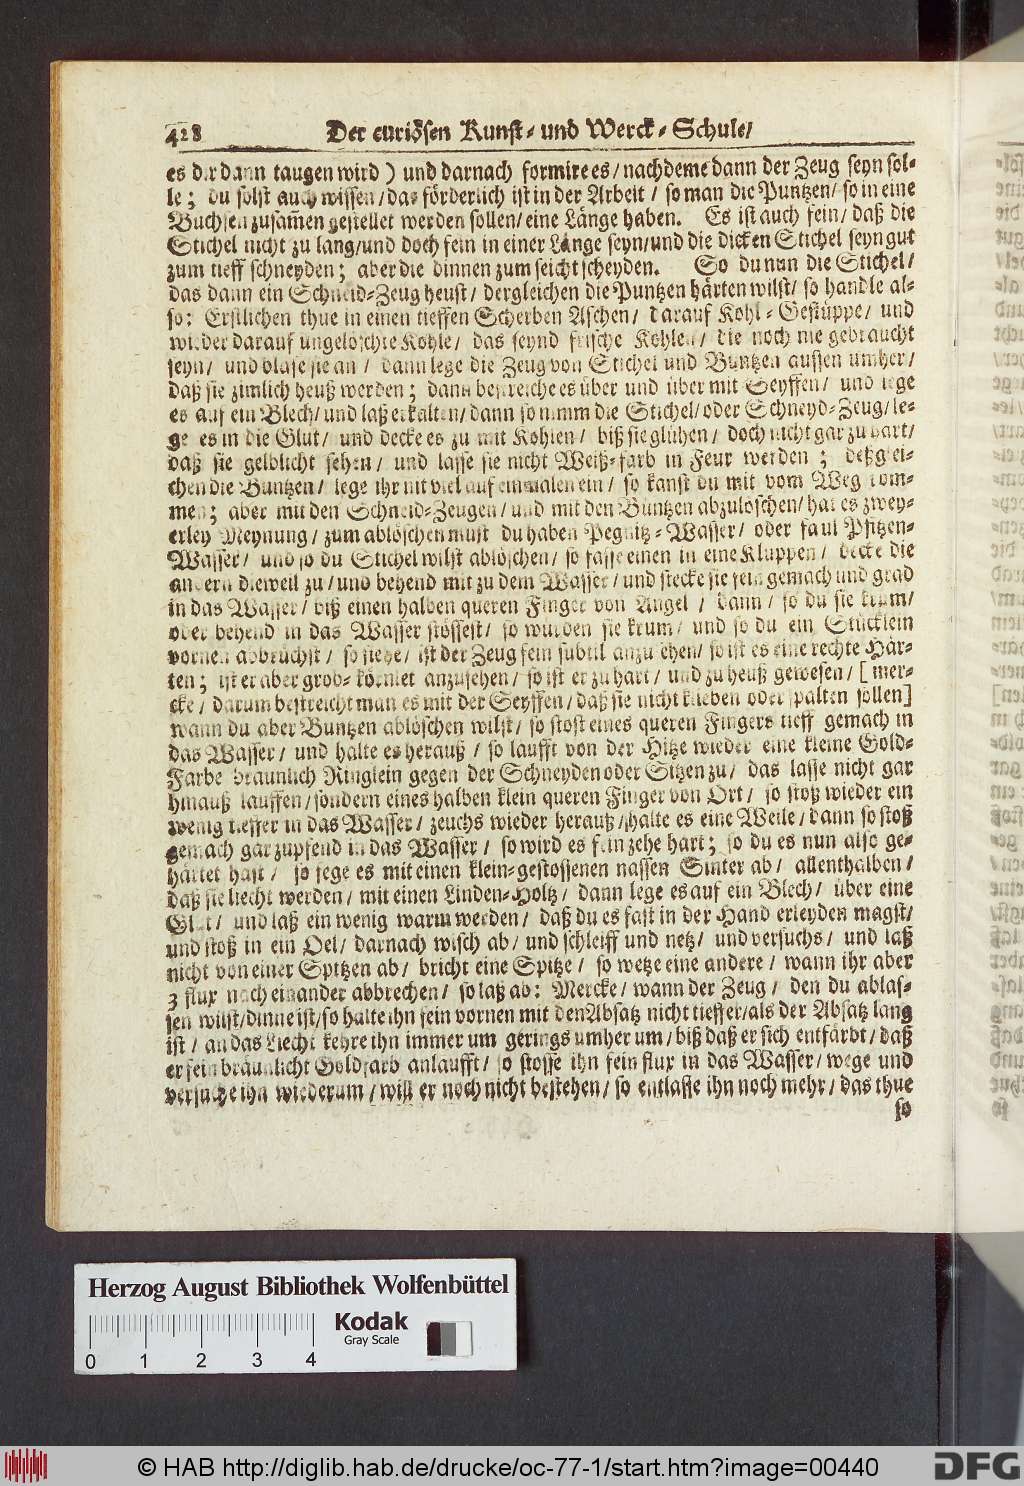 428 Der curiösen Kunst- und Werck-Schule/
es dir dann taugen wird ) und darnach formire es / nachdeme dann der Zeug seyn sol-
le ; du solst auch wissen / das förderlich ist in der Arbeit / so man die Puntzen / so in eine
Buchsen zusam̃en gestellet werden sollen / eine Länge haben. Es ist auch fein / daß die
Stichel nicht zu lang / und doch fein in einer Länge seyn / und die dicken Stichel seyn gut
zum tieff schneyden ; aber die dinnen zum seicht scheyden. So du nun die Stichel /
das dann ein Schneid-Zeug heust / dergleichen die Puntzen härten wilst / so handle al-
so : Erstlichen thue in einen tieffen Scherben Aschen / darauf Kohl-Gestüppe / und
wieder darauf ungelöschte Kohle / das seynd frische Kohlen / die noch nie gebraucht
seyn / und blase sie an / dann lege die Zeug von Stichel und Buntzen aussen umher /
daß sie zimlich heuß werden ; dann bestreiche es über und über mit Seyffen / und lege
es auf ein Blech / und laß erkalten / dann so nimm die Stichel / oder Schneyd-Zeug / le-
ge es in die Glut / und decke es zu mit Kohlen / biß sie glühen / doch nicht gar zu hart /
daß sie gelblicht sehen / und lasse sie nicht Weiß-farb in Feur werden ; deßglei-
chen die Buntzen / lege ihr nit viel auf einmalen ein / so kanst du mit vom Weg kom-
men ; aber mit den Schneid-Zeugen / und mit den Buntzen abzulöschen / hat es zwey-
erley Meynung / zum ablöschen must du haben Pegnitz-Wasser / oder faul Pfitzen-
Wasser / und so du Stichel wilst ablöschen / so fasse einen in eine Kluppen / decke die
andern dieweil zu / und behend mit zu dem Wasser / und stecke sie fein gemach und grad
in das Wasser / biß einen halben queren Finger von Angel / dann / so du sie krum /
oder behend in das Wasser stössest / so wurden sie krum / und so du ein Stücklein
vornen abbrüchst / so siehe / ist der Zeug fein subtil anzusehen / so ist es eine rechte Här-
ten ; ist er aber grob-körniet anzusehen / so ist er zu hart / und zu heuß gewesen / [ mer-
cke / darum bestreicht man es mit der Seyffen / daß sie nicht klieben oder spalten sollen ]
wann du aber Buntzen ablöschen wilst / so stoß eines queren Fingers tieff gemach in
das Wasser / und halte es herauß / so laufft von der Hitze wieder eine kleine Gold-
Farbe braunlich Ringlein gegen der Schneyden oder Sitzen zu / das lasse nicht gar
hinauß lauffen / sondern eines halben klein queren Finger von Ort / so stoß wieder ein
wenig tieffer in das Wasser / zeuchs wieder herauß / halte es eine Weile / dann so stoß
gemach gar zupfend in das Wasser / so wird es fein zehe hart ; so du es nun also ge-
härtet hast / so fege es mit einen klein-gestossenen nassen Sinter ab / allenthalben /
daß sie liecht werden / mit einen Linden-Holtz / dann lege es auf ein Blech / über eine
Glut / und laß ein wenig warm werden / daß du es fast in der Hand erleyden magst /
und stoß in ein Oel / darnach wisch ab / und schleiff und netz / und versuchs / und laß
nicht von einer Spitzen ab / bricht eine Spitze / so wetze eine andere / wann ihr aber
3 flux nach einander abbrechen / so laß ab : Mercke / wann der Zeug / den du ablas-
sen wilst / dinne ist / so halte ihn fein vornen mit den Absatz nicht tieffer / als der Absatz lang
ist / an das Liecht kehre ihn immer um gerings umher um / biß daß er sich entfärbt / daß
er fein bräunlicht Goldfarb anlaufft / so stosse ihn fein flux in das Wasser / wege und
versuche ihn wiederum / will er noch nicht bestehen / so entlasse ihn noch mehr / das thue
so
Herzog August Bibliothek Wolfenbüttel
Kodak
Gray Scale
0 1 2 3 4
© HAB http://diglib.hab.de/drucke/oc-77-1/start.htm?image=00440
DFG